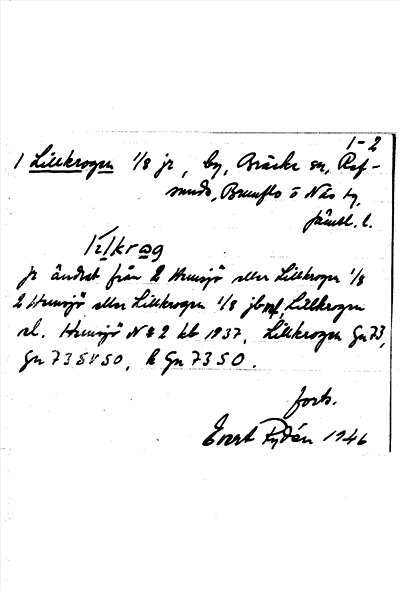 1-2
1 Lillkrogen 1/8 jr, by, Bräcke sn, Ref-
sunds, Brunflo o Näs tg,
Jämtl. l.
jr ändrat från 2 Hunsjö eller Lillkrogen 1/8
2 Hunsjö eller Lillkrogen 1/8 jb Lillkrogen
Hunsjö N:o 2 kb 1937, Lillkrogen Gn 73,
Gn 73 SV SO, k Gn 73 SO.
forts.
Evert Rydén 1946